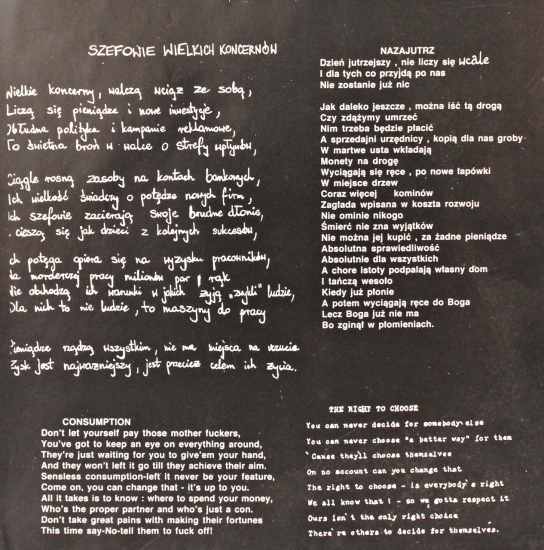 SZEFOWIE WIELKICH KONCERNÓW
Wielkie koncerny, walczą wciąż ze sobą,
Liczą się pieniądze i nowe inwestycje,
Obłudna polityka i kampanie reklamowe,
To świetna broń w walce o strefy wpływów,
Ciągle rosną zasoby na kontach bankowych,
Ich wielkość świadczy o potędze nowych firm,
Ich szefowie zacierają swoje brudne dłonie,
cieszą się jak dzieci z kolejnych sukcesów,
ch potęga opiera się na wyzysku pracowników,
Na morderczej pracy milionów par rąk
Nie obchodzą ich warunki w jakich żyją "zwykli" ludzie,
Dla nich to nie ludzie, to maszyny do pracy
Pieniądze rządzą wszystkim, nie ma miejsca na uczucie
Zysk jest najważniejszy, jest przecież celem ich życia.
NAZAJUTRZ
Dzień jutrzejszy , nie liczy się wcale
I dla tych co przyjdą po nas
Nie zostanie już nic
Jak daleko jeszcze , można iść tą drogą
Czy zdążymy umrzeć
Nim trzeba będzie płacić
A sprzedajni urzędnicy , kopią dla nas groby
W martwe usta wkładają
Monety na drogę
Wyciągają się ręce , po nowe łapówki
W miejsce drzew
Coraz więcej kominów
Zagłada wpisana w koszta rozwoju
Nie ominie nikogo
Śmierć nie zna wyjątków
Nie można jej kupić , za żadne pieniądze
Absolutna sprawiedliwość
Absolutnie dla wszystkich
A chore istoty podpalają własny dom
I tańczą wesoło
Kiedy już płonie
A potem wyciągają ręce do Boga
Lecz Boga już nie ma
Bo zginął w płomieniach.
CONSUMPTION
Don't let yourself pay those mother fuckers,
You've got to keep an eye on everything around,
They're just waiting for you to give'em your hand,
And they won't left it go till they achieve their aim.
Sensless consumption-left it never be your feature,
Come on, you can change that - it's up to you.
All it takes is to know : where to spend your money,
Who's the proper partner and who's just a con.
Don't take great pains with making their fortunes
This time say-No-tell them to fuck off!
THE RIGHT TO CHOOSE
You can never decide for somebody else
You can never choose "a better way" for them
'Cause they'll choose themselves
On no account can you change that
The right to choose - is everybody's right
We all know that ! - so we gotta respect it
Ours isn't the only right choice
There're others to decide for themselves.